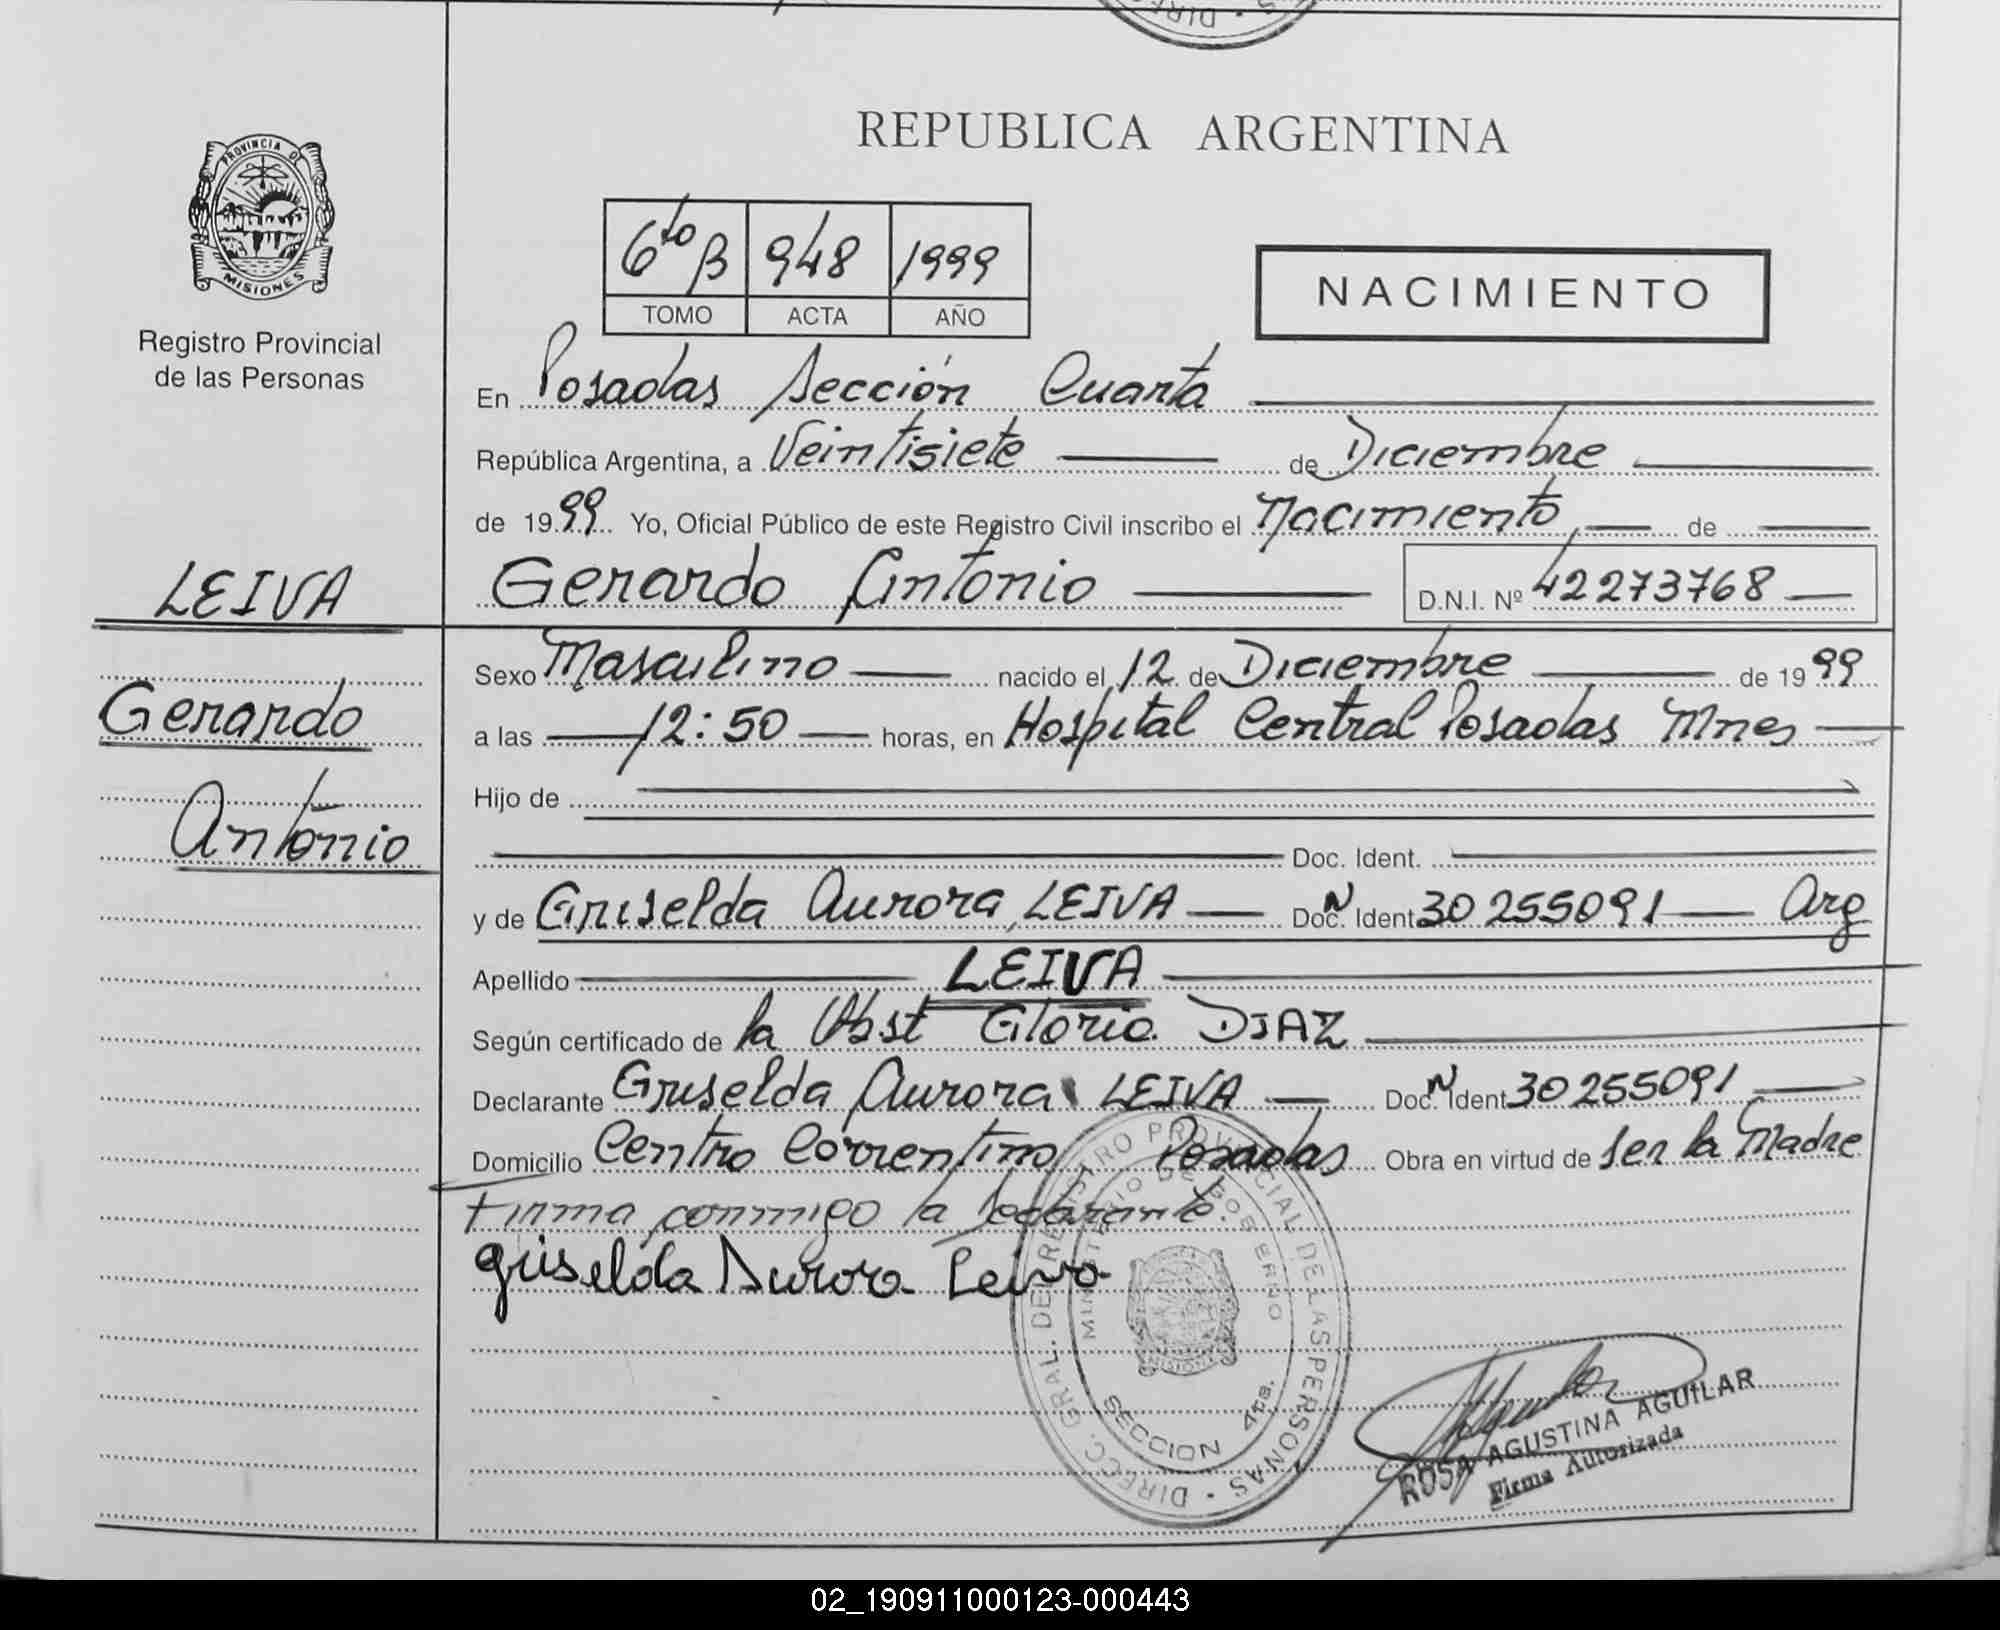 REPUBLICA ARGENTINA
PROVINCIA DE
MISIONES
Registro Provincial
de las Personas
6to B 948 1999
TOMO ACTA AÑO
NACIMIENTO
En Posadas Sección Cuarta
República Argentina, a Veintisiete de Diciembre
de 1999 Yo, Oficial Público de este Registro Civil inscribo el Nacimiento de
LEIVA
Gerardo Antonio D.N.I. Nº 42273768
Sexo Masculino nacido el 12 de Diciembre de 1999
Gerardo
a las 12:50 horas, en Hospital Central Posadas Mnes
Hijo de
Antonio
Doc. Ident.
y de Griselda Aurora LEIVA Doc. N Ident 30255091 Arg
Apellido LEIVA
Según certificado de la Obst Gloria DIAZ
Declarante Griselda Aurora LEIVA Doc. N Ident 30255091
Domicilio Centro Correntino Posadas Obra en virtud de ser la Madre
Firma conmigo la declarante.
Griselda Aurora Leiva
DIRECC. GRAL. DEL REGISTRO PROVINCIAL DE LAS PERSONAS
MINISTERIO DE GOBIERNO
MISIONES
SECCION 4ta.
ROSA AGUSTINA AGUILAR
Firma Autorizada
02_190911000123-000443